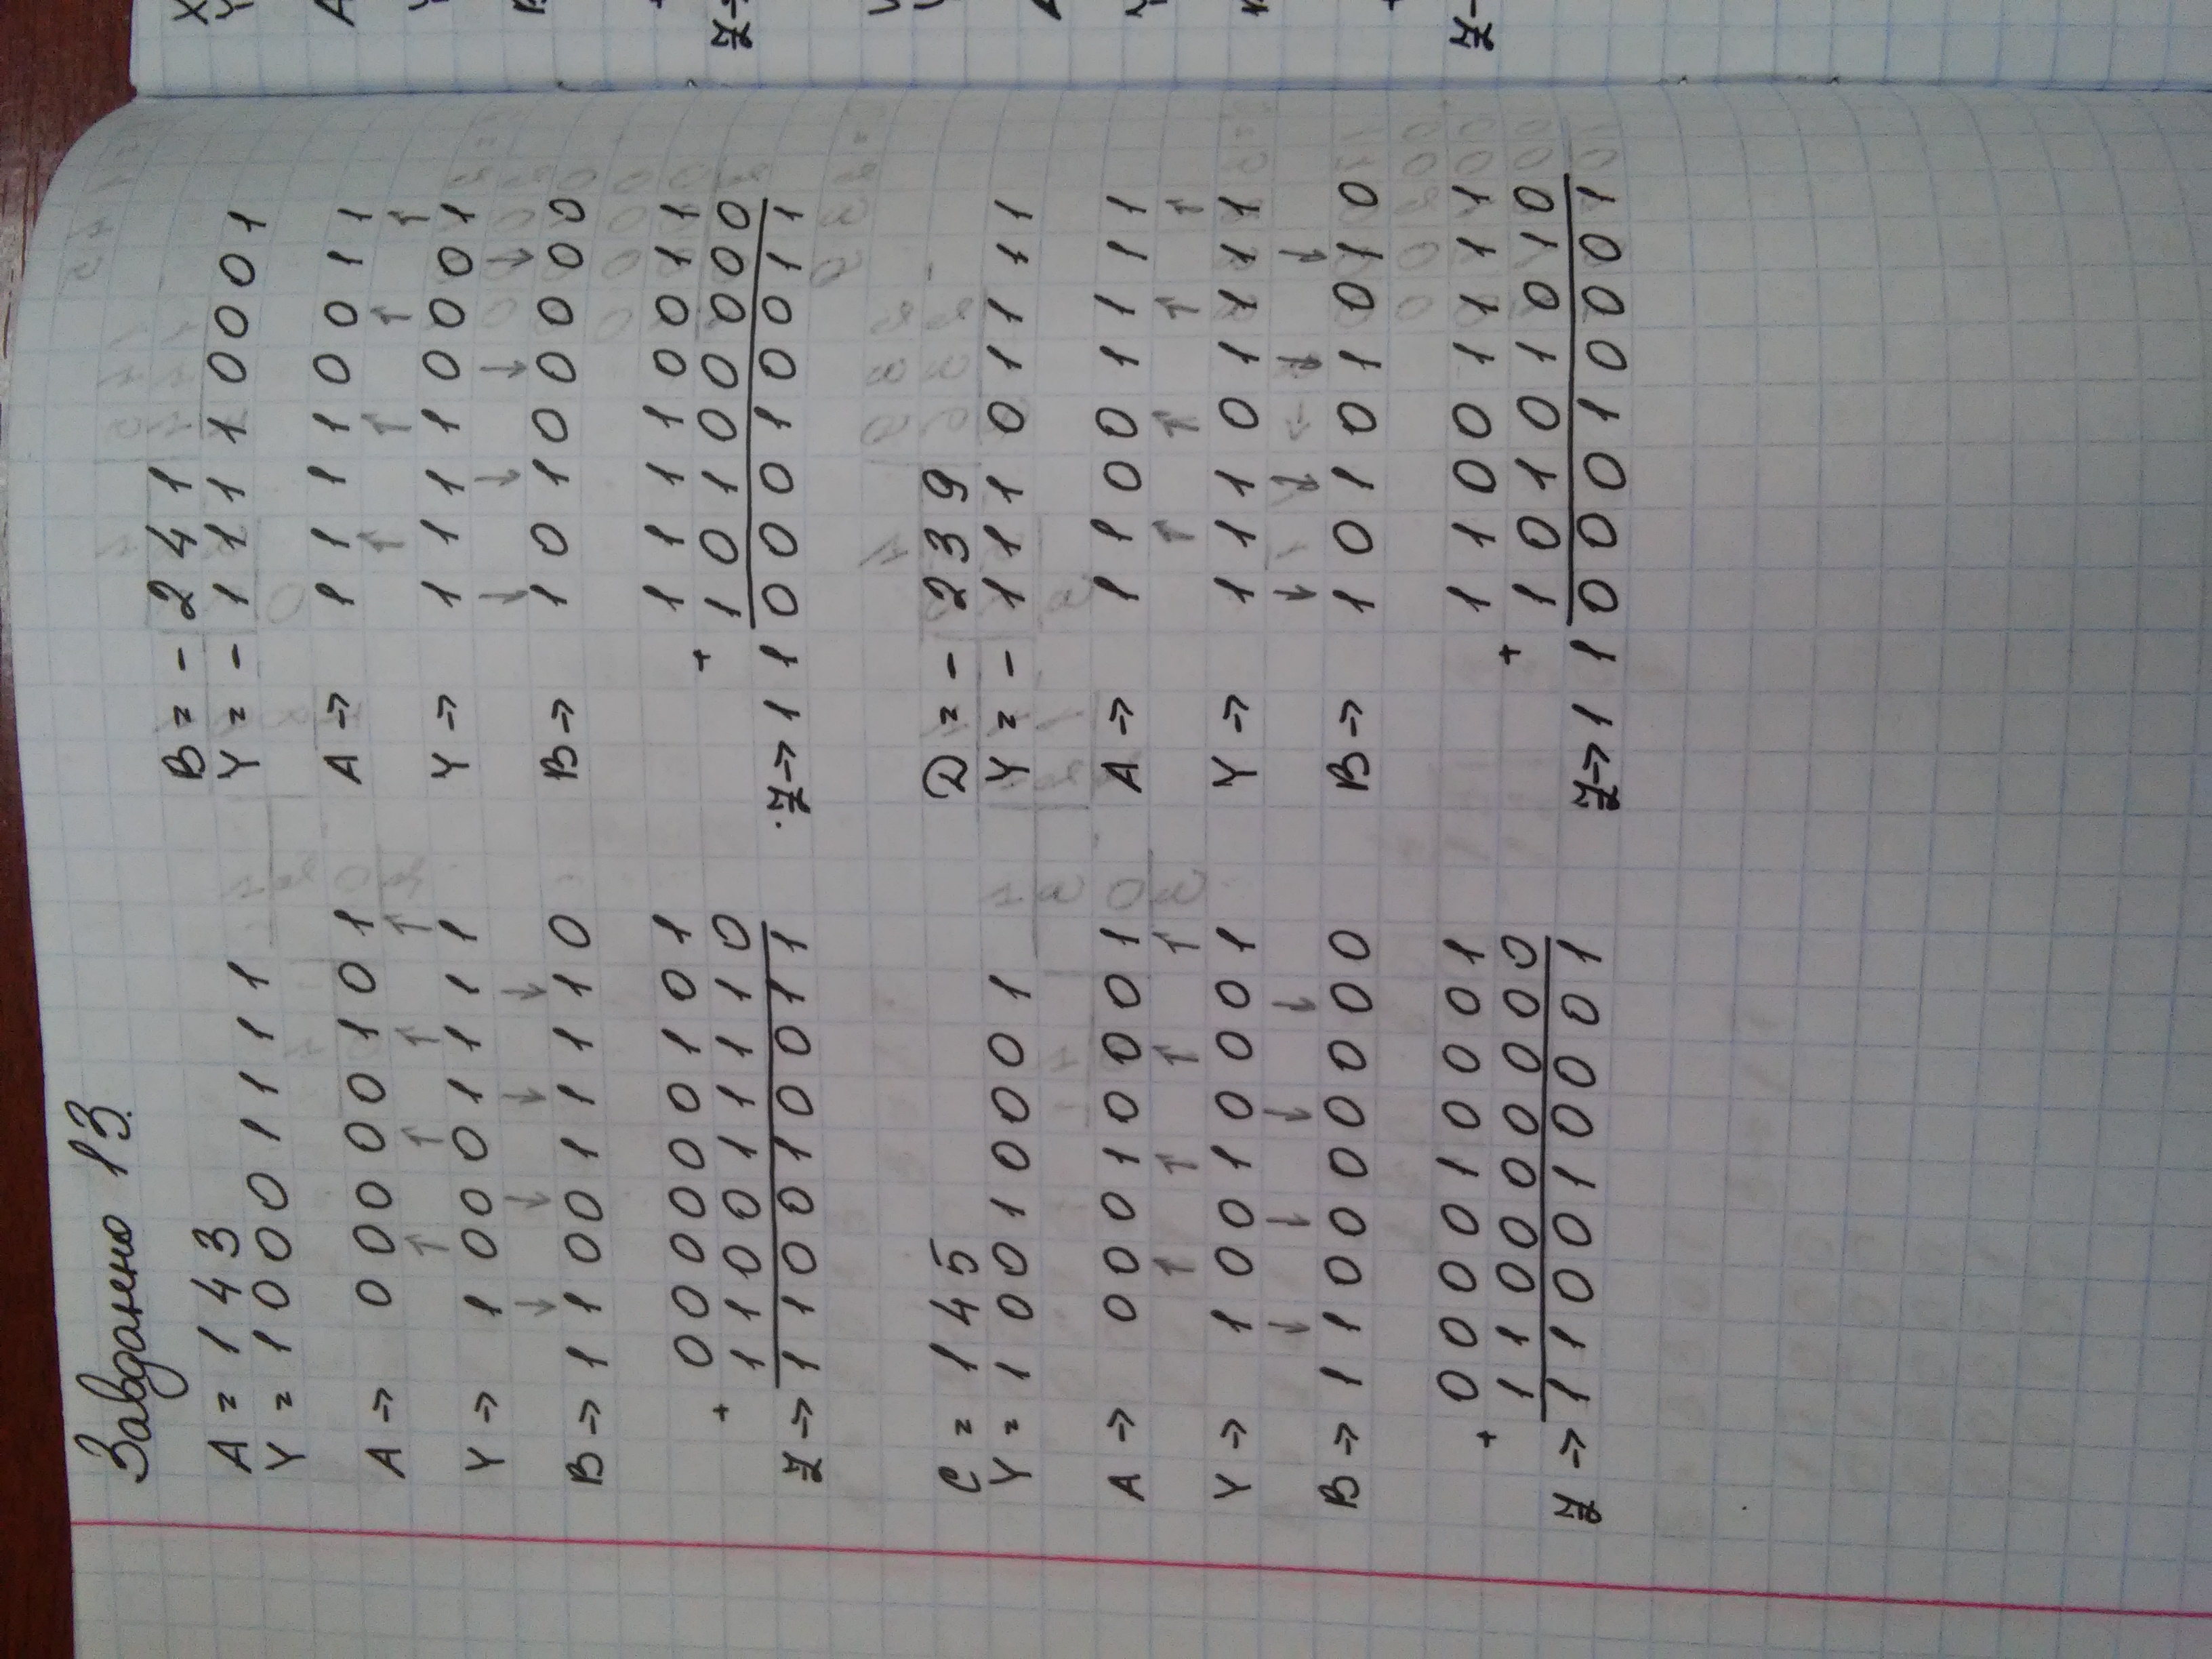 Завдання 13.
A = 143
Y = 10001111
A → 00000101
Y → 10001111
B → 110011110
+ 000000101
110011110
Z → 110010011
B = - 241
Y = - 11110001
A → 11110011
Y → 11110001
B → 10100000
+ 11110011
10100000
Z → 1100010011
C = 145
Y = 10010001
A → 00010001
Y → 10010001
B → 110000000
+ 000010001
110000000
Z → 110010001
D = - 239
Y = - 11101111
A → 11001111
Y → 11101111
B → 10101010
+ 11001111
10101010
Z → 1100010001